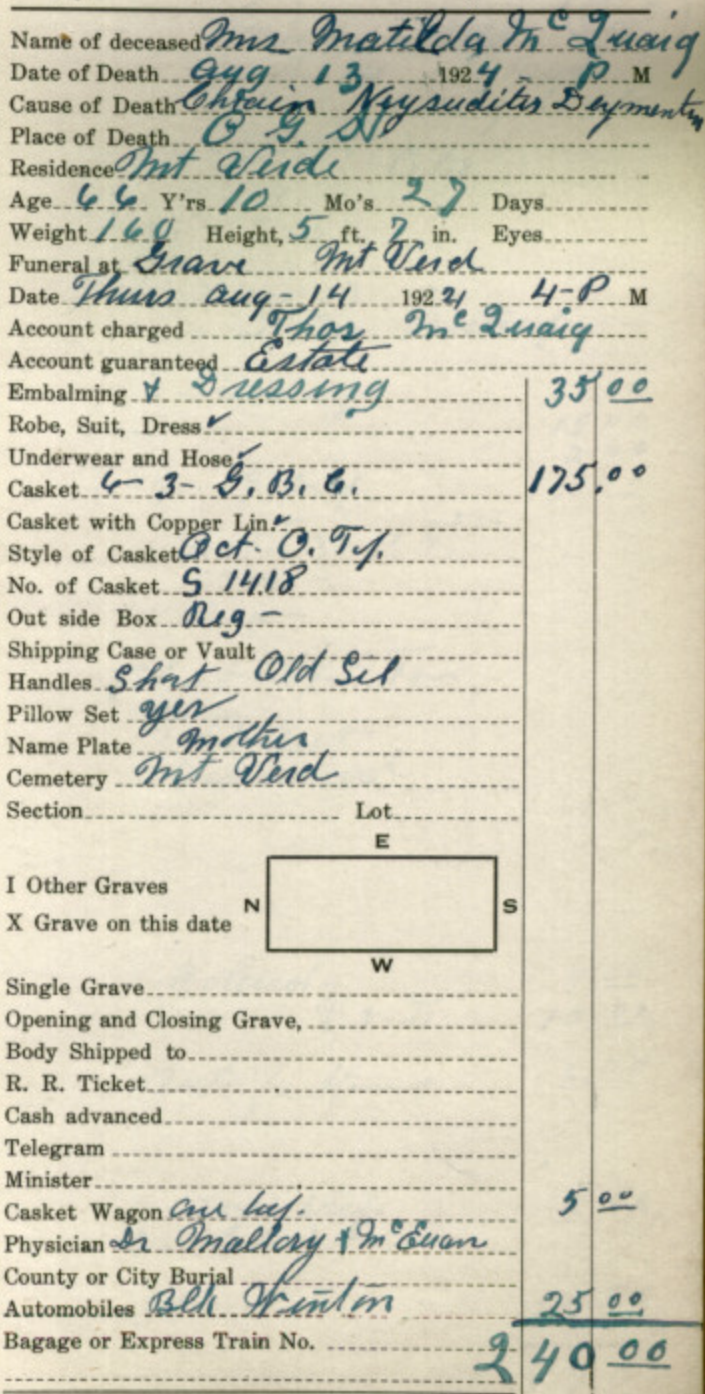 Name of deceased Mrs Matilda McQuaig
Date of Death Aug 13 1924 - P M
Cause of Death
Place of Death O G S
Residence Mt Verde
Age 66 Y'rs 10 Mo's 27 Days
Weight 160 Height, 5 ft. 7 in. Eyes
Funeral at Grave Mt Verd
Date Thurs Aug - 14 1924 4-P M
Account charged Thos McQuaig
Account guaranteed Estate
Embalming & Dressing 35 00
Robe, Suit, Dress ✓
Underwear and Hose ✓
Casket 6-3- G. B. C. 175.00
Casket with Copper Lin. ✓
Style of Casket Oct. O.
No. of Casket S 1418
Out side Box Reg -
Shipping Case or Vault
Handles Old Sil
Pillow Set yes
Name Plate Mother
Cemetery Mt Verd
Section Lot
E
I Other Graves
N S
X Grave on this date
W
Single Grave
Opening and Closing Grave,
Body Shipped to
R. R. Ticket
Cash advanced
Telegram
Minister
Casket Wagon 5 00
Physician Dr Mallory & McEuan
County or City Burial
Automobiles Blk Winton 25 00
Bagage or Express Train No. 240 00